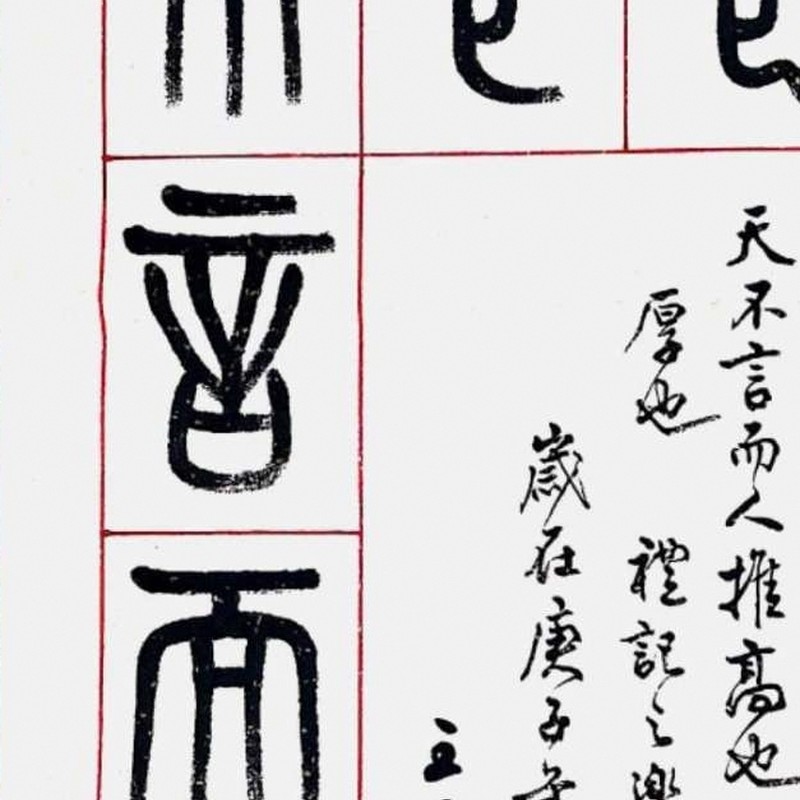 天不言而人推高也
厚也 禮記之樂
歲在庚子年
王
言而